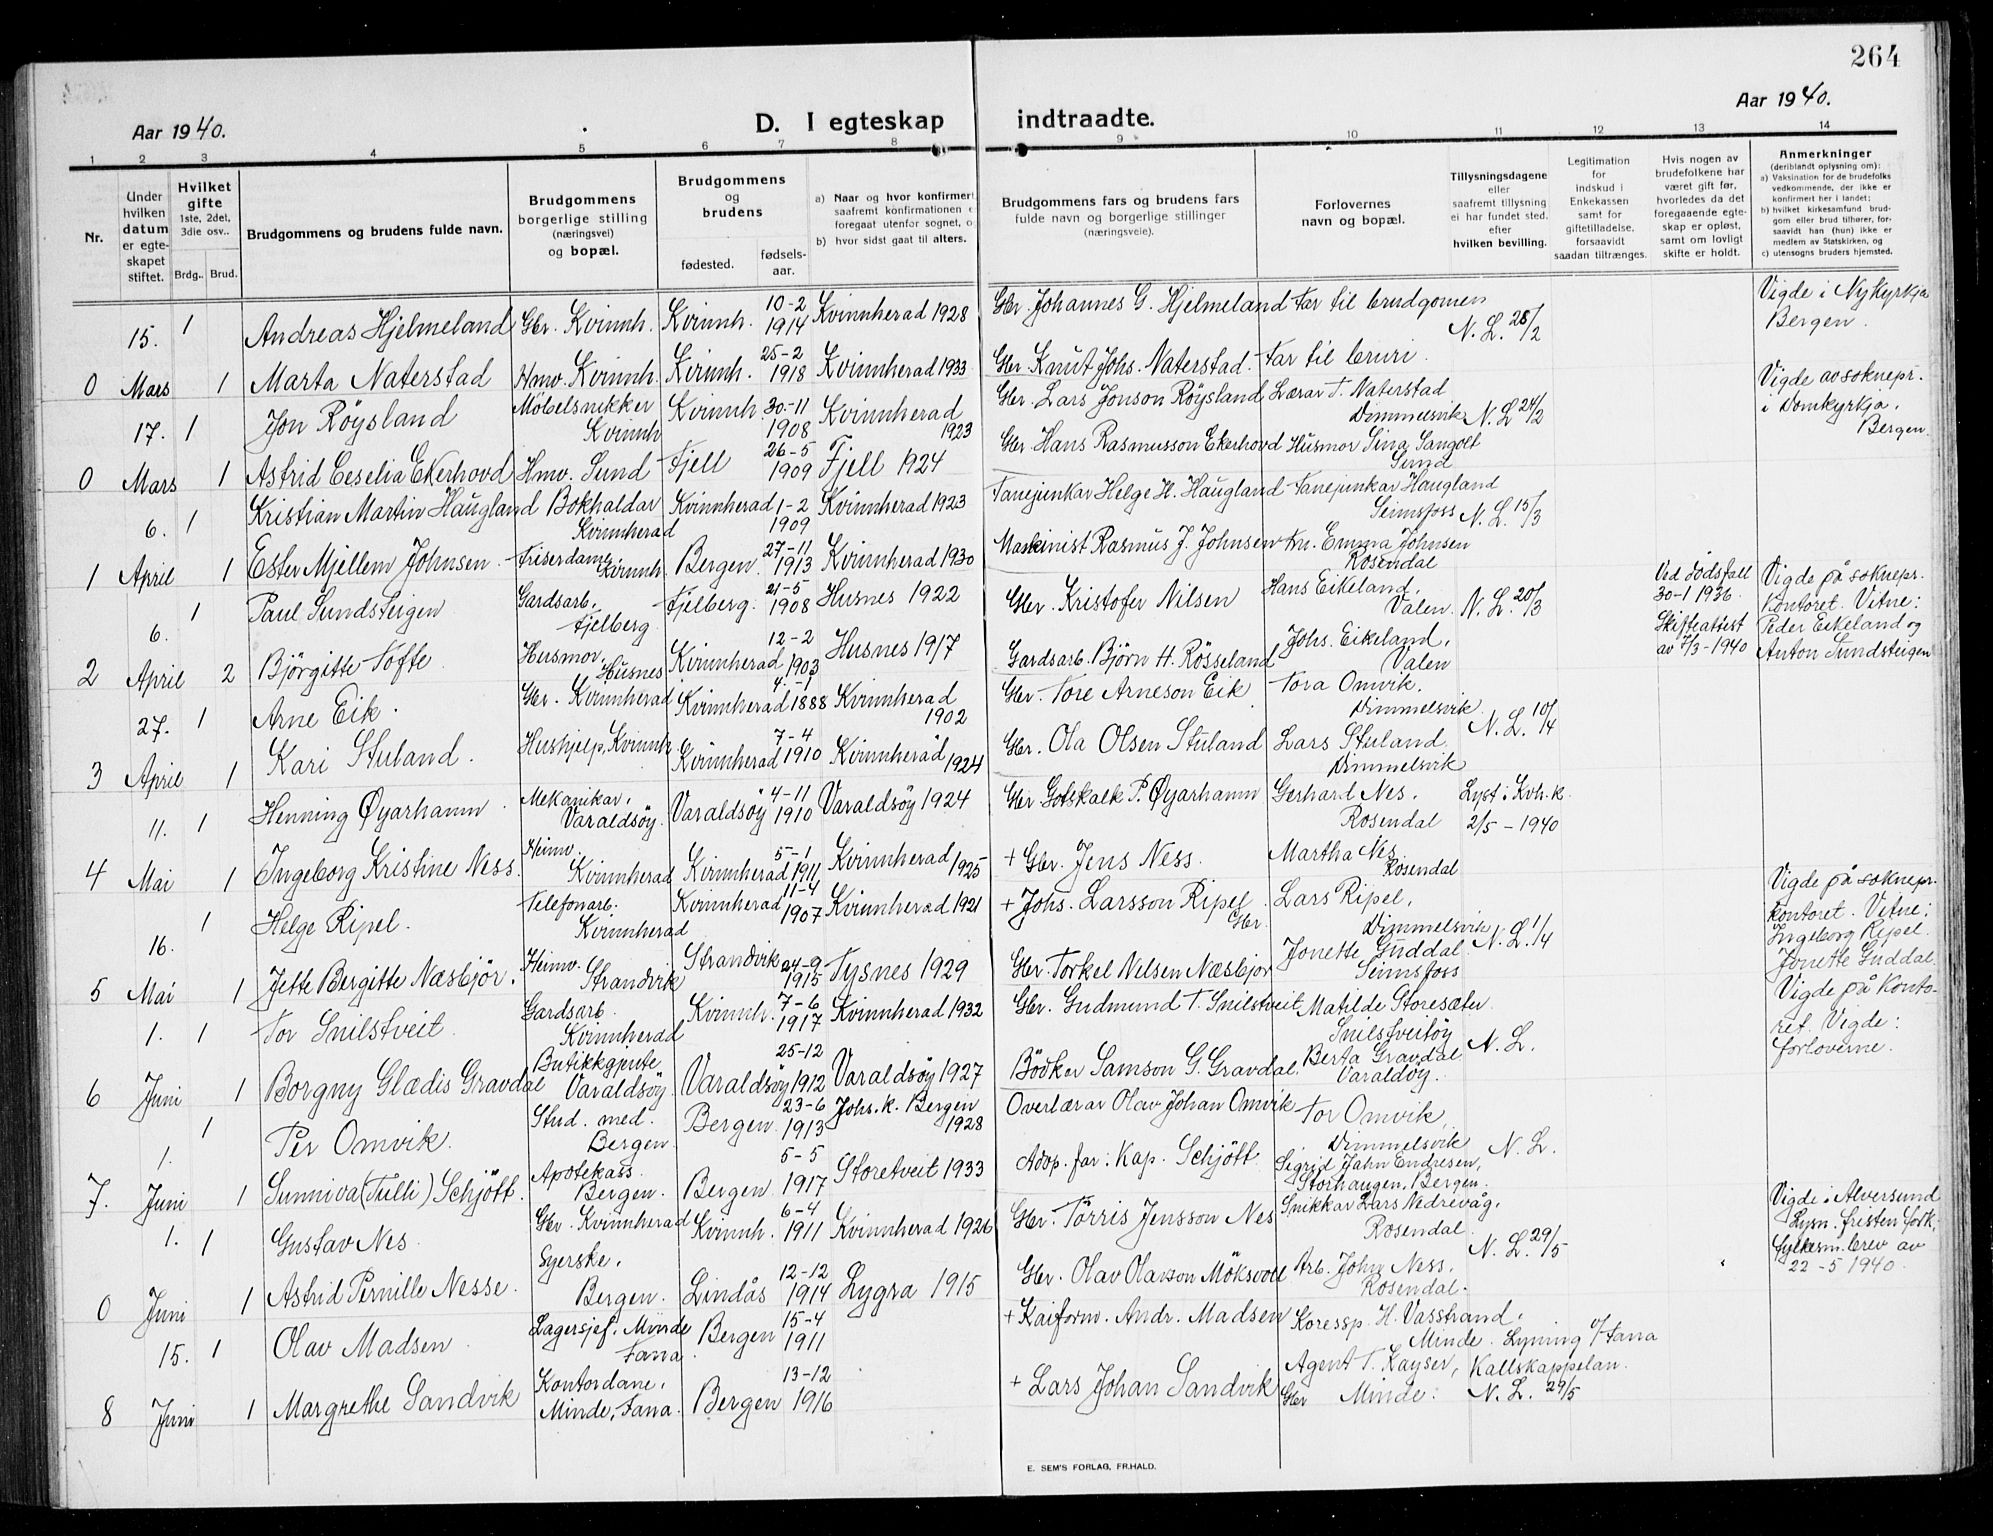 264
Aar 1940.
D. I egteskap indtraadte.
Aar 1940.
1 2 3 4 5 6 7 8 9 10 11 12 13 14
Nr.
Under hvilken datum er egteskapet stiftet.
Hvilket gifte 1ste, 2det, 3die osv..
Brdg.. Brud.
Brudgommens og brudens fulde navn.
Brudgommens borgerlige stilling (næringsvei) og bopæl.
Brudgommens og brudens
fødested. fødsels-aar.
a) Naar og hvor konfirmert saafremt konfirmationen foregaat utenfor sognet,
b) hvor sidst gaat til alters.
Brudgommens fars og brudens fars fulde navn og borgerlige stillinger (næringsveie).
Forlovernes navn og bopæl.
Tillysningsdagene eller saafremt tillysning ei har fundet sted. efter hvilken bevilling.
Legitimation for indskud i Enkekassen samt for giftetilladelse, forsaavidt saadan tiltrænges.
Hvis nogen av brudefolkene har været gift før, hvorledes da det foregaaende egteskap er opløst, samt om lovligt skifte er holdt.
Anmerkninger (deriblandt oplysning om):
a) Vaksination for de brudefolks vedkommende, der ikke er konfirmert her i landet;
b) hvilket kirkesamfund brudgom eller brud tilhører, forsaavidt han (hun) ikke er medlem av Statskirken, og
c) utensogns bruders hjemsted.
15. 1 Andreas Hjelmeland Gbr. Kvinnh. Kvinnh. 10-2 1914 Kvinnherad 1928 Gbr. Johannes G. Hjelmeland Far til brudgomen N. L. 28/2 Vigde i Nykyrkja Bergen.
0 Mars 1 Marta Naterstad Hmv. Kvinnh. Kvinnh. 25-2 1918 Kvinnherad 1933 Gbr. Knut Johs. Naterstad. Far til bruri.
17. 1 Jon Röysland Möbelsnikker Kvinnh Kvinnh 30-11 1908 Kvinnherad 1923 Gbr. Lars Jonson Röysland Lærar T. Naterstad Dimmelsvik N. L. 24/2 Vigde av soknepr. i Domkyrkja. Bergen.
0 Mars 1 Astrid Ceselia Ekerhovd Hmv. Sund Fjell 26-5 1909 Fjell 1924 Gbr. Hans Rasmusson Ekerhovd Husmor Sina Sangolt Sund
6. 1 Kristian Martin Haugland Bokhaldar Kvinnherad Kvinnherad 1-2 1909 Kvinnherad 1923 Fanejunkar Helge H. Haugland Fanejunkar Haugland Seimsfoss N. L. 15/3
1 April 1 Ester Mjellem Johnsen Friserdame Kvinnh. Bergen 27-11 1913 Kvinnherad 1930 Maskinist Rasmus J. Johnsen Fru. Emma Johnsen Rosendal
6. 1 Paul Sundsteigen Gardsarb. Fjelberg Fjelberg. 21-5 1908 Husnes 1922 Gbr. Kristofer Nilsen Hans Eikeland, Valen N. L. 20/3 Ved dödsfall 30-1 1936. Skifteattest av 7/3-1940 Vigde på soknepr. kontoret. Vitne: Peder Eikeland og Anton Sundsteigen
2 April 2 Björgitte Tofte. Husmor, Husnes Kvinnherad 12-2 1903 Husnes 1917 Gardsarb. Björn H. Rösseland Johs. Eikeland, Valen
27. 1 Arne Eik. Gbr. Kvinnherad Kvinnherad 4.-1 1888 Kvinnherad 1902 Gbr. Tore Arneson Eik Tora Omvik. Dimmelsvik N. L. 10/4
3 April 1 Kari Stuland. Hushjelp, Kvinnh. Kvinnherad 7-4 1910 Kvinnherad 1924 Gbr. Ola Olsen Stuland Lars Stuland Dimmelsvik
11. 1 Henning Øyarhamn. Mekanikar, Varaldsöy. Varaldsöy 4-11 1910 Varaldsöy 1924 Gbr Gotskalk P. Øyarhamn Gerhard Nes. Rosendal Lyst i Kvh.k. 2/5-1940
4 Mai 1 Ingeborg Kristine Ness. Heimv. Kvinnherad Kvinnherad 5-1 1911 Kvinnherad 1925 + Gbr. Jens Ness. Martha Nes Rosendal
16. 1 Helge Ripel. Telefonarb. Kvinnherad Kvinnherad 11-4 1907 Kvinnherad 1921 + Johs. Larsson Ripel. Gbr. Lars Ripel, Dimmelsvik N. L. 1/4 Vigde på soknepr. kontoret. Vitne: Ingeborg Ripel. Jonette Guddal.
5 Mai 1 Jette Bergitte Næsbjör. Heimv. Strandvik Strandvik 24-9 1915 Tysnes 1929 Gbr. Torkel Nilsen Næsbjör Jonette Guddal Seimsfoss
1. 1 Tor Snilstveit. Gardsarb. Kvinnherad Kvinnh. 7-6 1917 Kvinnherad 1932 Gbr. Gudmund T. Snilstveit Matilde Storesæter Snilstveitöy N. L. Vigde på kontoret. Vigde: forloverne.
6 Juni 1 Borgny Glædis Gravdal Butikkgjente Varaldsöy Varaldsöy 25-12 1912 Varaldsöy 1927 Bödker Samson G. Gravdal. Berta Gravdal Varaldöy.
1. 1 Per Omvik. Stud. med. Bergen. Bergen 23-6 1913 Johs. k. Bergen 1928 Overlærar Olav Johan Omvik Tor Omvik, Dimmelsvik N. L.
7. Juni 1 Sunniva (Tulli) Schjött. Apotekass. Bergen. Bergen 5-5 1917 Storetveit 1933 Adop. far: Kap. Schjött Sigrid Jahn Endresen, Storhaugen, Bergen.
1. 1 Gustav Nes Gbr. Kvinnherad Kvinnh. 6-4 1911 Kvinnherad 1926 Gbr. Törris Jensson Nes Snikkar Lars Nedrevåg, Rosendal N. L. 29/5 Vigde i Alversund Lysn. fristen fork. fylkesm. brev av 22-5 1940.
0 Juni 1 Astrid Pernille Nesse. Syerske, Bergen. Lindås 12-12 1914 Lygra 1915 Gbr. Olav Olavson Möksvoll Arb. John Ness, Rosendal.
15. 1 Olav Madsen Lagersjef. Minde Fana. Bergen 15-4 1911 + Kaiform. Andr. Madsen Koressp. H. Vasstrand, Minde. Lysning i Fana Kallskappelan.
8 Juni 1 Margrethe Sandvik Kontordame, Minde, Fana. Bergen 13-12 1916 + Lars Johan Sandvik Gbr Agent T. Kayser, Minde: N. L. 29/5
E. SEM'S FORLAG, FR.HALD.